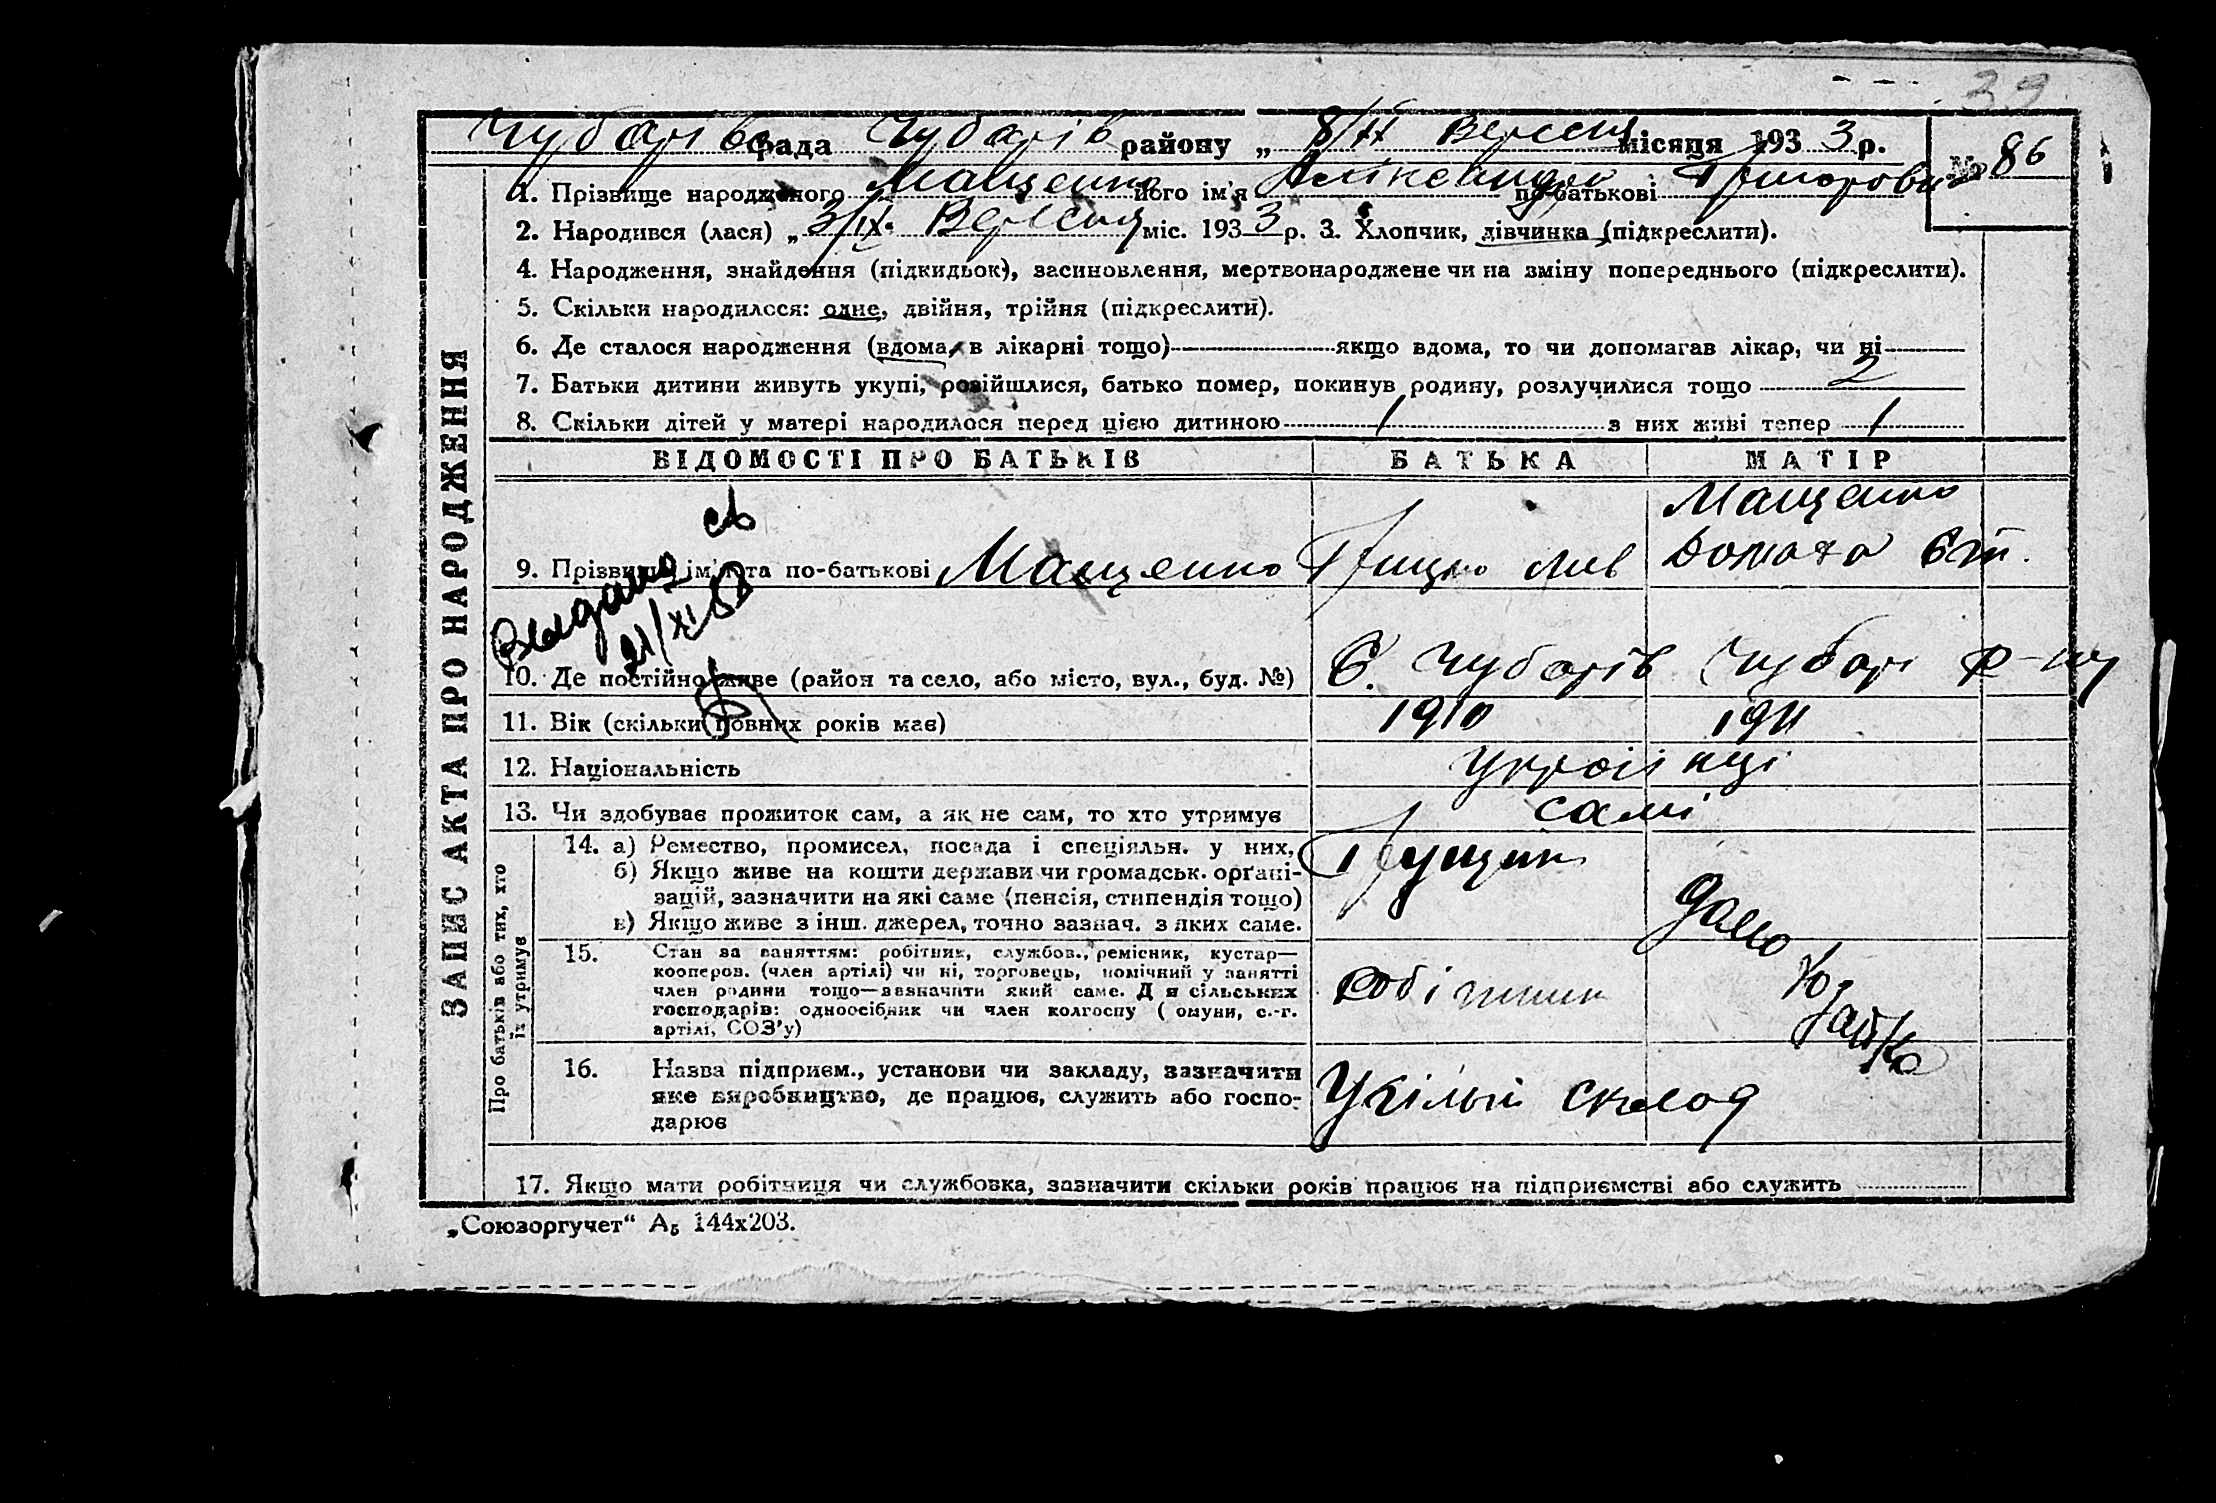 39
Чубарівсрада Чубарів району „ 8/ІХ Вересня місяця 1933 р. № 86
1. Прізвище народженого Мащенко його ім'я Александра по-батькові Григоровна
2. Народився (лася) „ 3/ІХ. Вересня міс. 1933 р. 3. Хлопчик, дівчинка (підкреслити).
4. Народження, знайдення (підкидьок), засиновлення, мертвонароджене чи на зміну попереднього (підкреслити).
5. Скільки народилося: одне, двійня, трійня (підкреслити).
6. Де сталося народження (вдома, в лікарні тощо) якщо вдома, то чи допомагав лікар, чи ні
7. Батьки дитини живуть укупі, розійшлися, батько помер, покинув родину, розлучилися тощо 2
8. Скільки дітей у матері народилося перед цією дитиною 1 з них живі тепер 1
ЗАПИС АКТА ПРО НАРОДЖЕННЯ
ВІДОМОСТІ ПРО БАТЬКІВ БАТЬКА МАТІР
9. Прізвище ім'я та по-батькові Мащенко Грицко Лив Мащенко
Домаха Єт.
Выдано св
21/XI 58
10. Де постійно живе (район та село, або місто, вул., буд. №) С. Чубарів Чубар р-ну
11. Вік (скільки повних років має) 1910 1911
12. Національність Українці
13. Чи здобуває прожиток сам, а як не сам, то хто утримує самі
Про батьків або тих, хто
їх утримує
14. а) Ремество, промисел, посада і спеціяльн. у них, Грущик
б) Якщо живе на кошти держави чи громадськ. орґані-
зацій, зазначити на які саме (пенсія, стипендія тощо)
в) Якщо живе з інш. джерел, точно зазнач. з яких саме.
15. Стан за заняттям: робітник, службов., ремісник, кустар—
кооперов. (член артілі) чи ні, торговець, помічний у занятті
член родини тощо—зазначити який саме. Для сільських
господарів: одноосібник чи член колгоспу (комуни, с.-г.
артілі, СОЗ'у)
робітник
дамо
16. Назва підприєм., установи чи закладу, зазначити
яке виробництво, де працює, служить або госпо-
дарює
склад
17. Якщо мати робітниця чи службовка, зазначити скільки років працює на підприємстві або служить
„Союзоргучет“ А5 144х203.